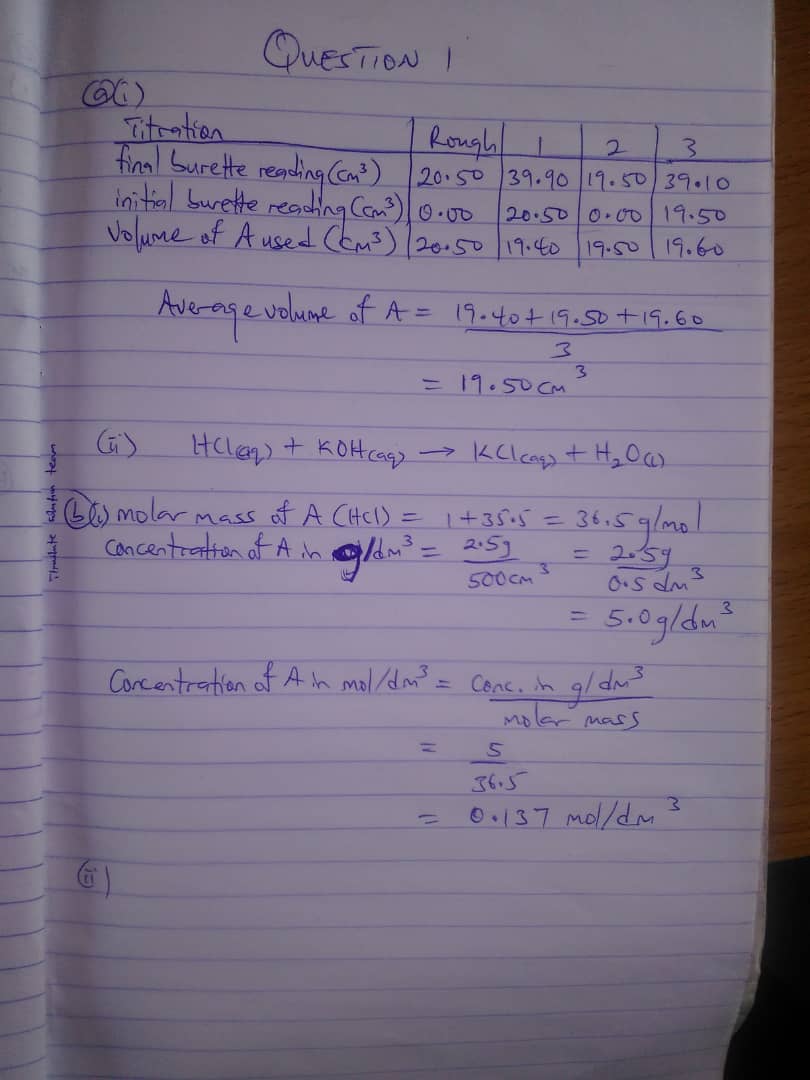 QUESTION 1
a(i)
Titration | Rough | 1 | 2 | 3
final burette reading (cm³) | 20.50 | 39.90 | 19.50 | 39.10
initial burette reading (cm³) | 0.00 | 20.50 | 0.00 | 19.50
Volume of A used (cm³) | 20.50 | 19.40 | 19.50 | 19.60
Average volume of A = 19.40 + 19.50 + 19.60
3
= 19.50 cm³
(ii) HCl(aq) + KOH(aq) → KCl(aq) + H₂O(l)
(b)(i) molar mass of A (HCl) = 1 + 35.5 = 36.5 g/mol
Concentration of A in g/dm³ = 2.5g = 2.5g
500cm³ 0.5 dm³
= 5.0g/dm³
Concentration of A in mol/dm³ = Conc. in g/dm³
molar mass
= 5
36.5
= 0.137 mol/dm³
(ii)
team